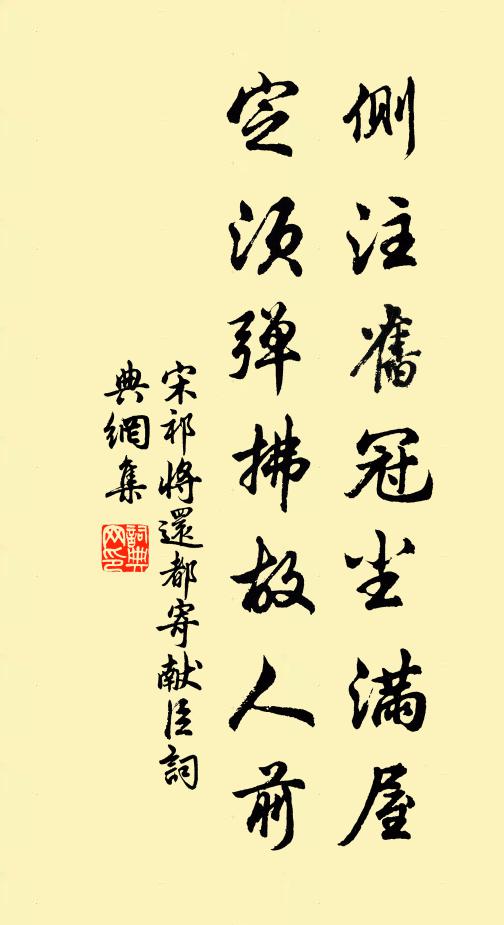 側注舊冠尘滿屋
定須弹拂故人前
宋祁將還都寄献臣詞
典網集
詞典網印